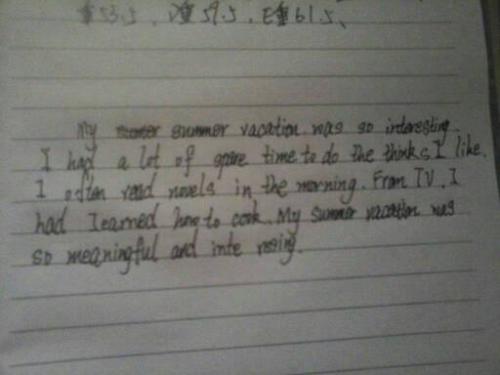 53.5、 59.5、E 61.5、
My summer vacation was so interesting.
I had a lot of spare time to do the thinks I like.
I often read novels in the morning. From TV, I
had learned how to cook. My summer vacation was
so meaningful and inte resing.